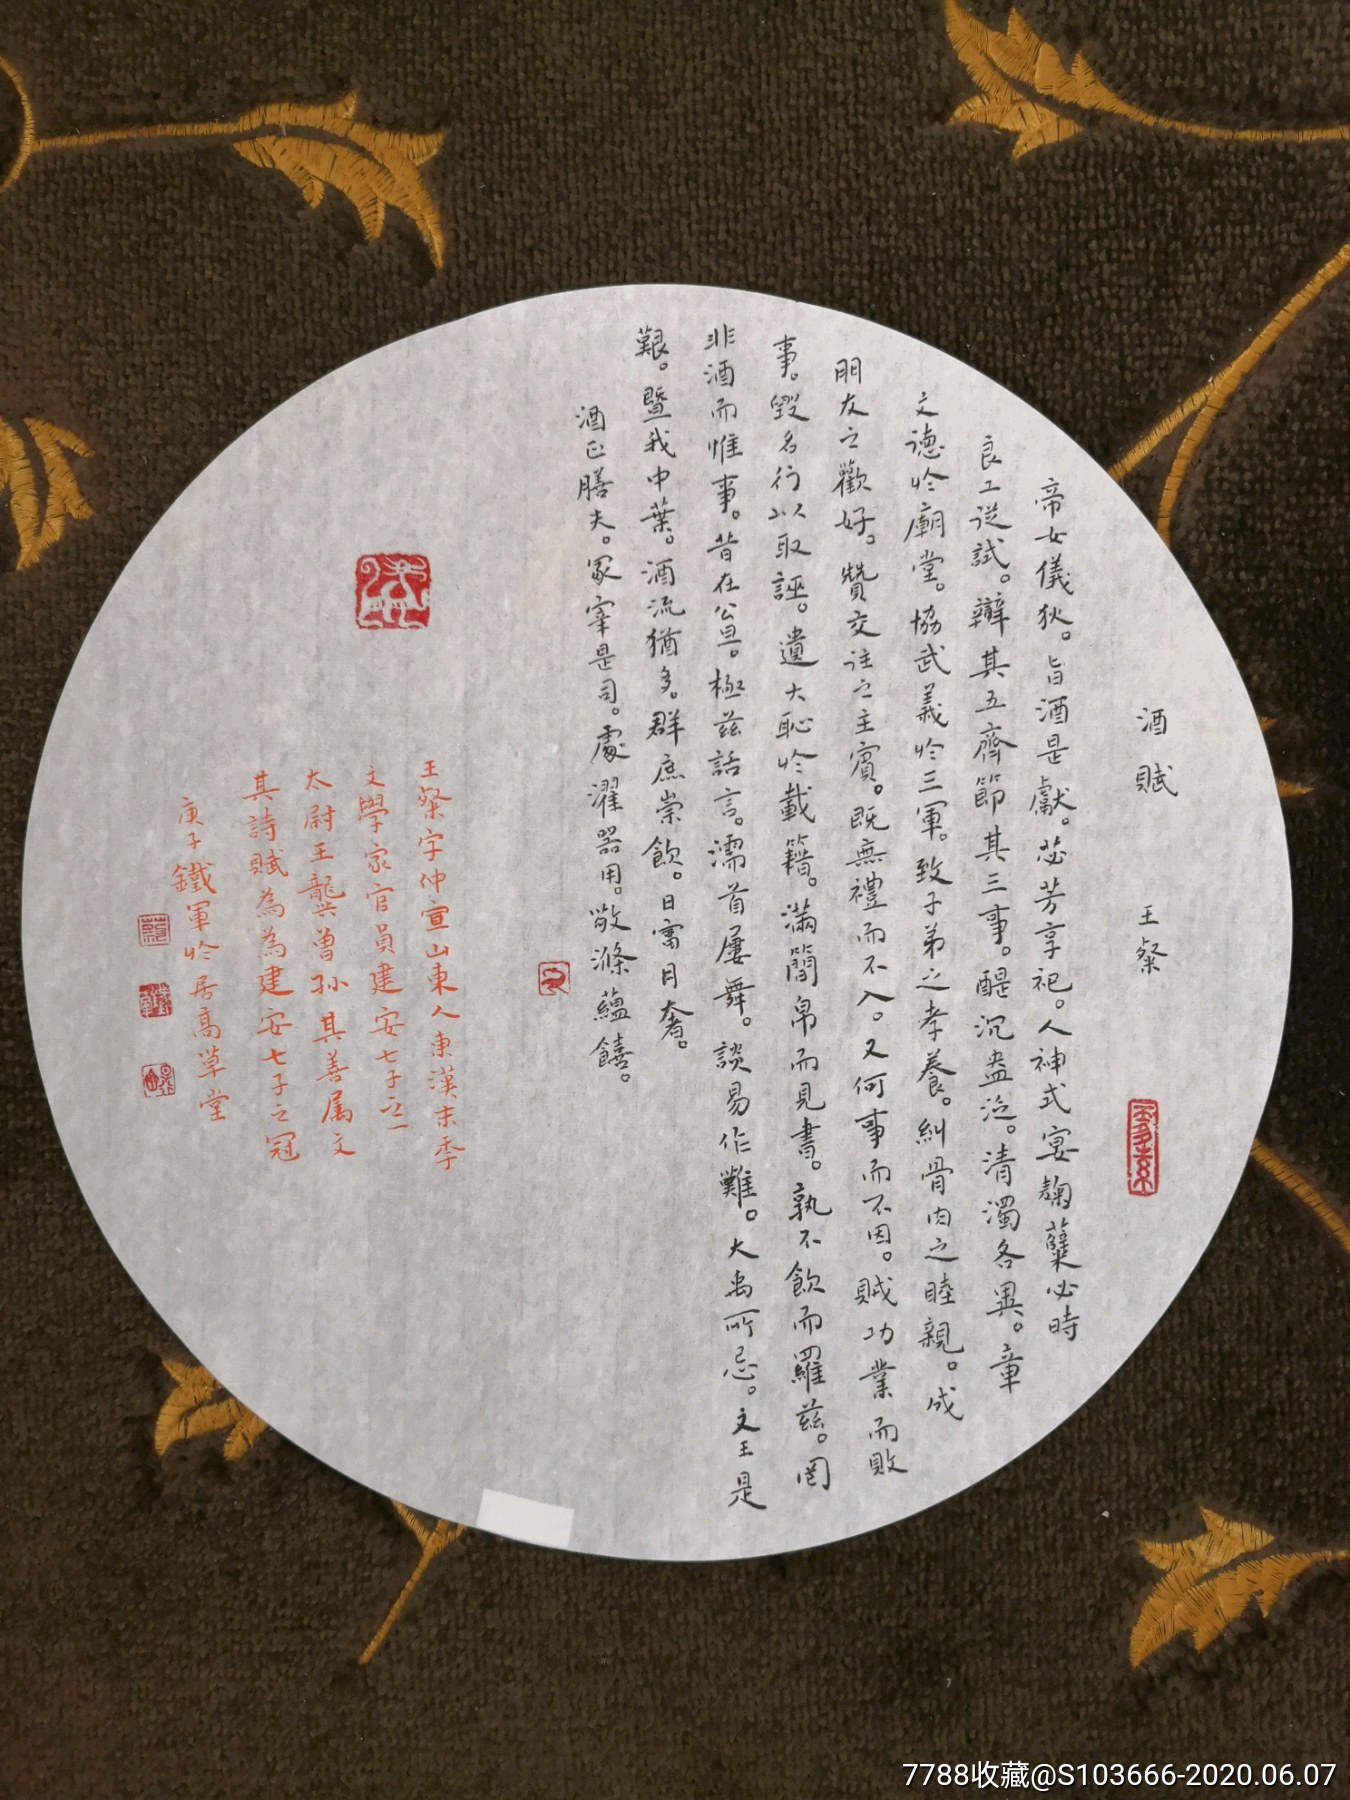 酒賦 王粲
帝女儀狄。旨酒是獻。苾芳享祀。人神式宴麹蘖必時
良工從試。辯其五齊節其三事。醍沉盎泛。清濁各異。章
文德於廟堂。協武義於三軍。致子弟之孝養。糾骨肉之睦親。成
朋友之歡好。贊交往之主賓。既無禮而不入。又何事而不因。賊功業而敗
事。毀名行以取誣。遺大恥於載籍。滿簡帛而見書。孰不飲而羅茲。罔
非酒而惟事。昔在公旦。極茲話言。濡首屢舞。談易作難。大禹所忌。文王是
艱。暨我中葉。酒流猶多。群庶崇飲。日富月奢。
酒正膳夫。冢宰是司。處濯器用。敬滌蘊饎。
王粲字仲宣山東人東漢末季
文學家官員建安七子之一
太尉王龔曾孫其善属文
其詩賦為為建安七子之冠
庚子鐵軍於居高草堂
7788收藏@S103666-2020.06.07